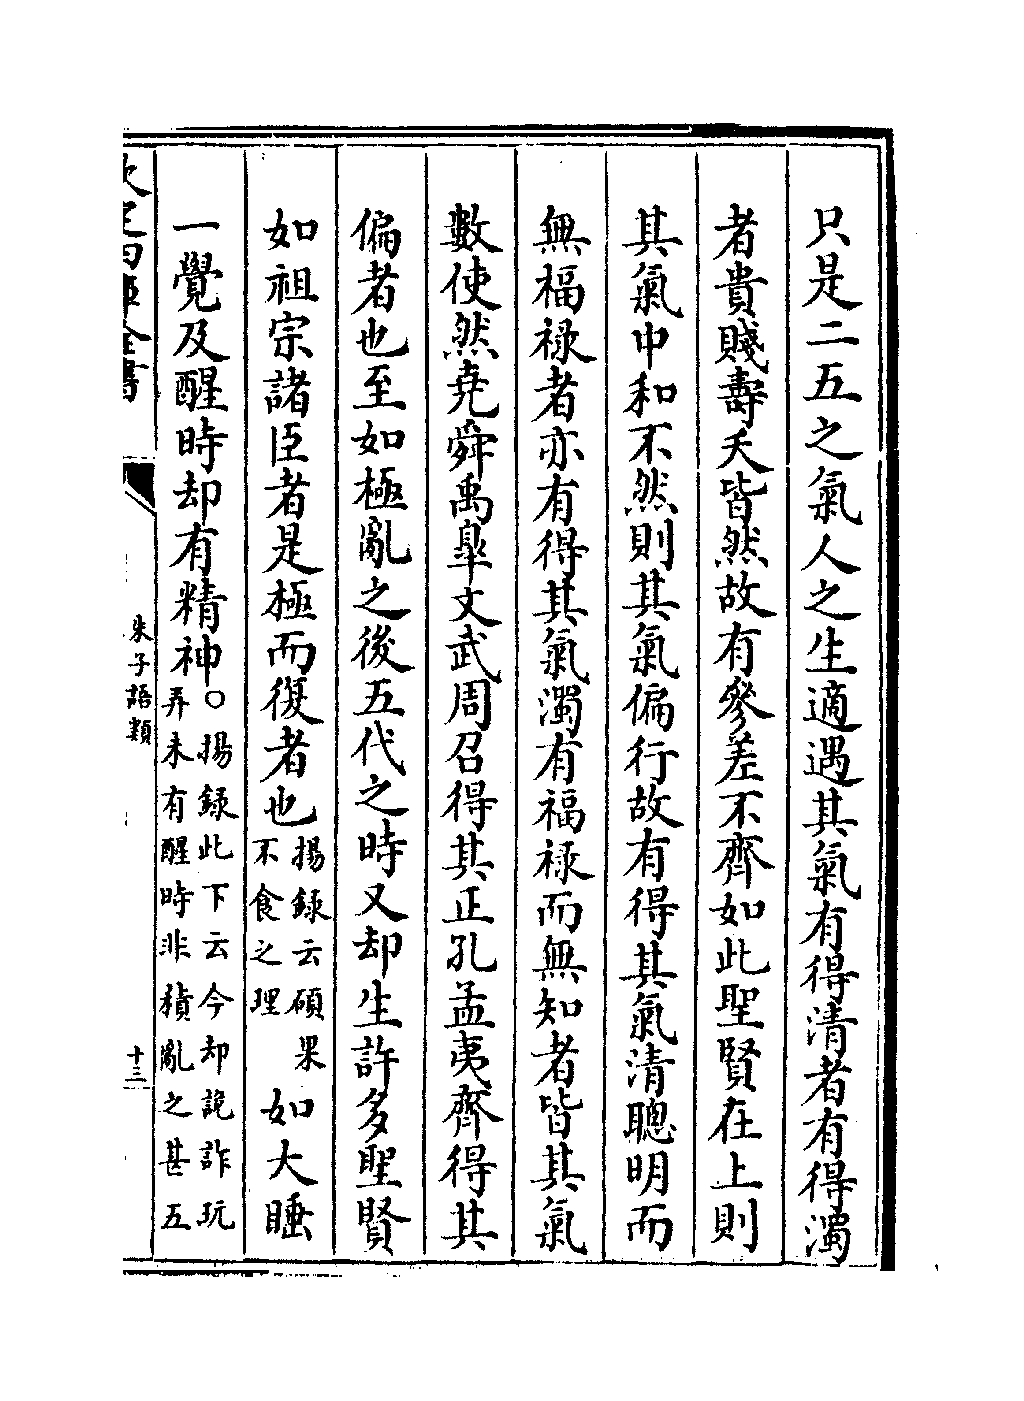 只是二五之氣人之生適遇其氣有得清者有得濁
者貴賤壽夭皆然故有參差不齊如此聖賢在上則
其氣中和不然則其氣偏行故有得其氣清聰明而
無福禄者亦有得其氣濁有福禄而無知者皆其氣
數使然堯舜禹臯文武周召得其正孔孟夷齊得其
偏者也至如極亂之後五代之時又却生許多聖賢
如祖宗諸臣者是極而復者也
揚録云碩果
不食之理
如大睡
一覺及醒時却有精神
○揚録此下云今却詭詐玩
弄未有醒時非積亂之甚五
欽定四庫全書
朱子語類
十三